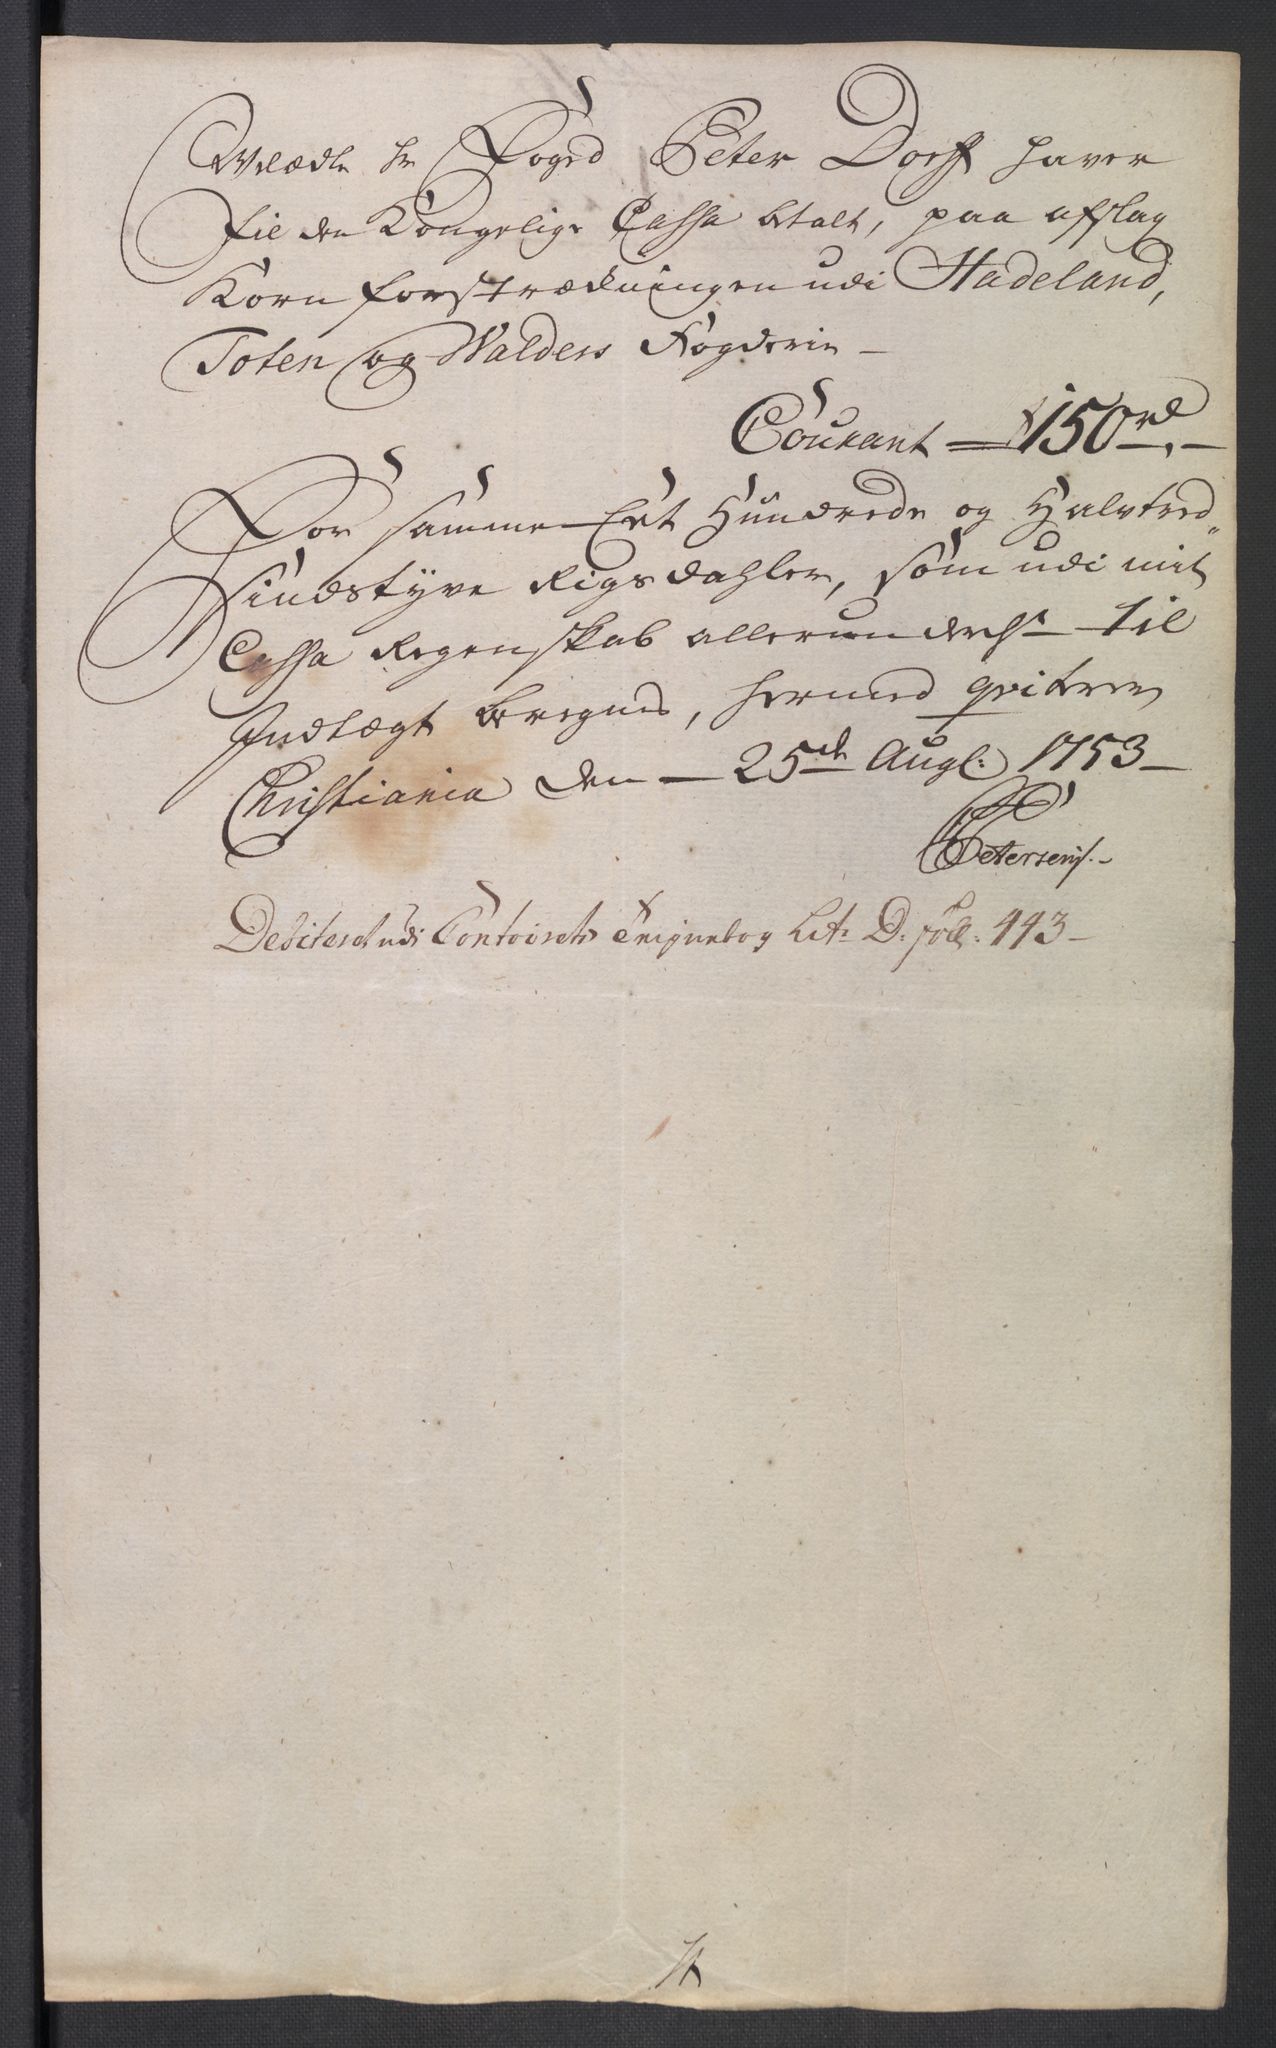 Welædle hr Foged Peter Dorff haver
til den Kongelige Cassa betalt, paa afslag
Korn forstrækningen udi Hadeland,
Toten og Walders Fogderie –
Courant – 150 rd. –
For samme Eet Hundrede og Halvtred„
sindstyve Rigsdahler, som udi mit
Cassa Regenskab allerunderdst til
Indtægt beregnes, hermed qviteres
Christiania den – 25de Aug: 1753 –
Petersen
Debiteret udi Contoirets Teignebog Lit: D: foll: 443 –